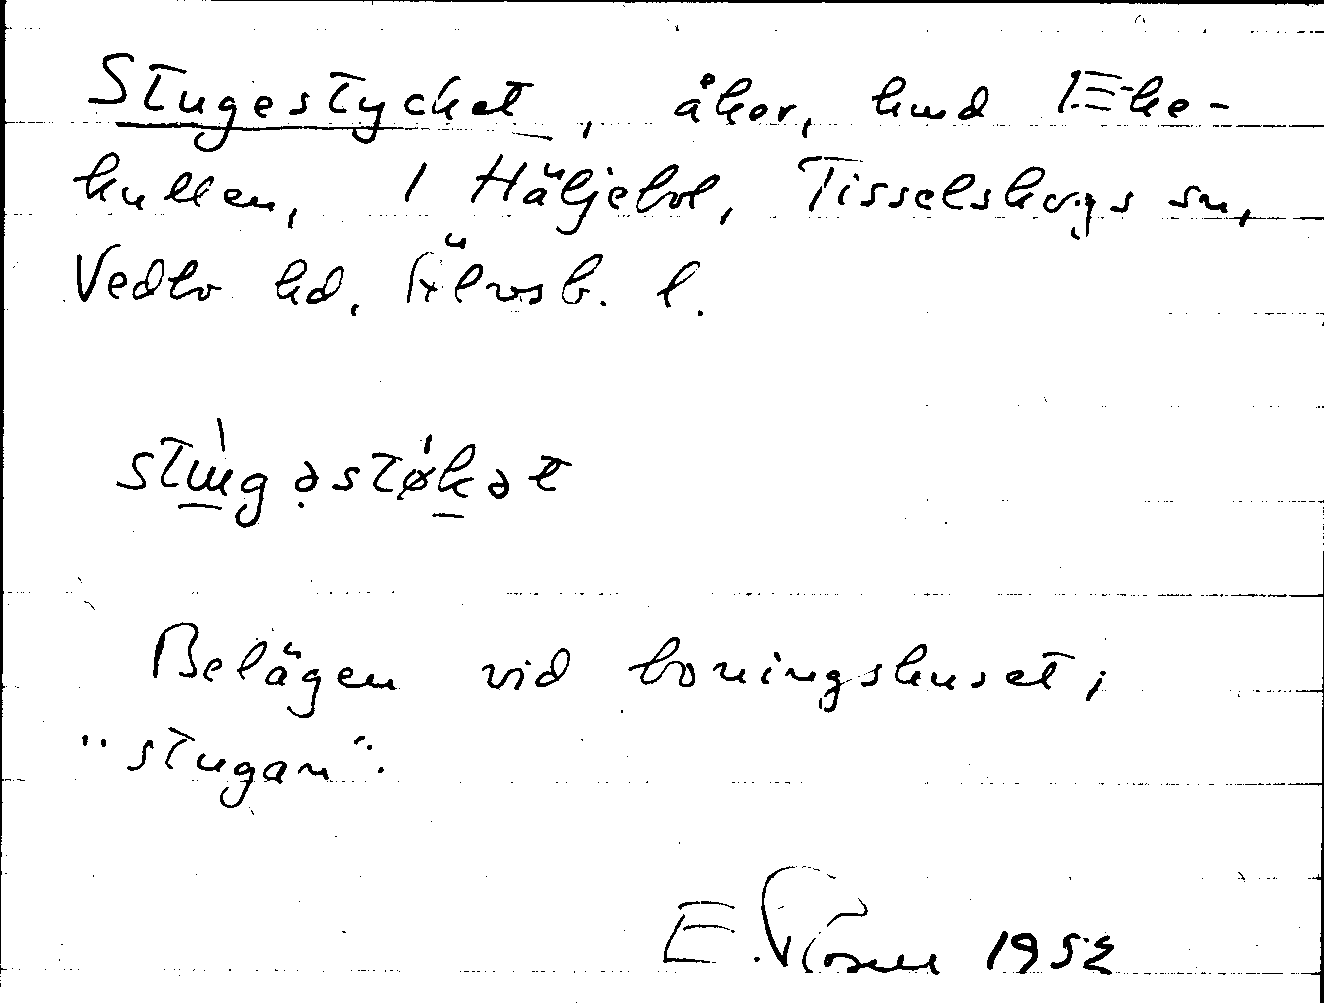 Stugestycket, åker, hmd Eke-
kullen, 1 Häljebol, Tisselskogs sn,
Vedbo hd. Älvsb. l.
Belägen vid boningshuset,
"stugan".
E. 1952